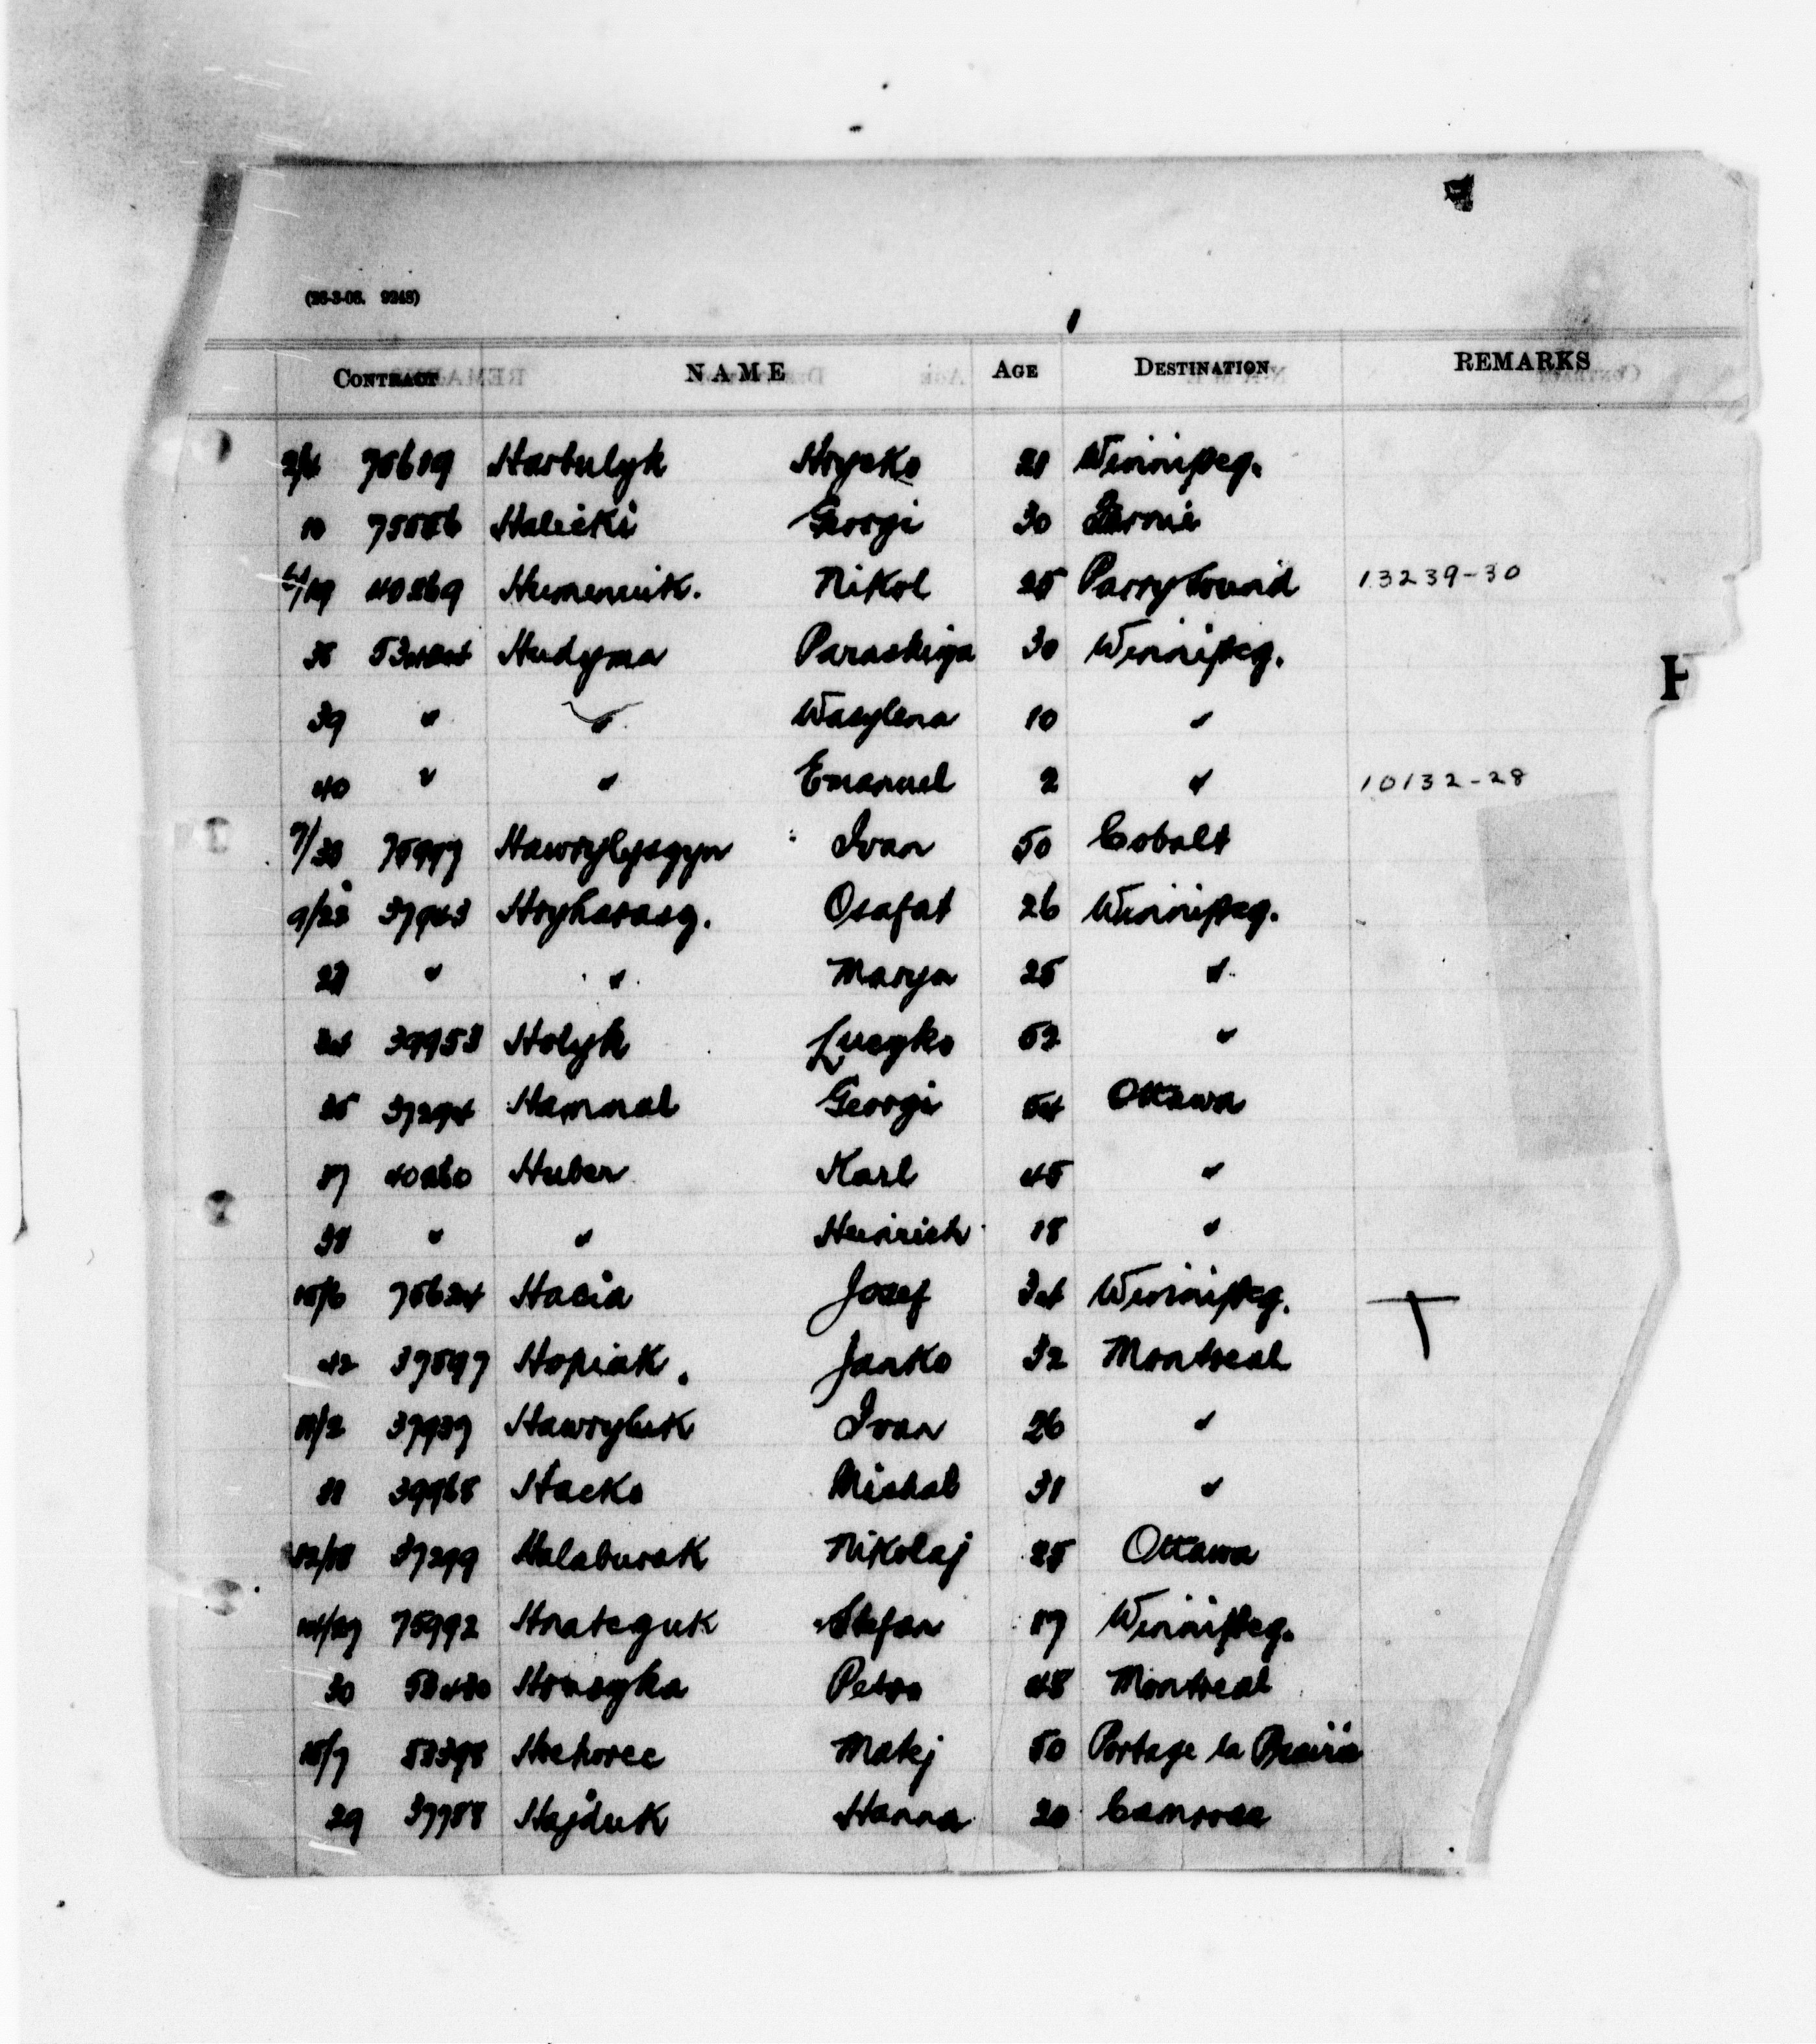 (26-3-06. 9248)
CONTRACT NAME AGE DESTINATION REMARKS
2/4 75619 Harbulyk Hrycko 21 Winnipeg.
10 Halicki Georgi 30
40269 Humeniuk. Nikol 25 Parry Sound 13239-30
38 Hudyma Paraskiya 30 Winnipeg.
39 " " Wasylena 10 "
40 " " Emanuel 2 " 10132-28
7/30 75997 Ivan 50 Cobalt
9/22 37943 Osafat 26 Winnipeg.
23 " " Marya 25 "
24 39953 Holyk Lucyko 52 "
25 37294 Hammal Georgi 54 Ottawa
37 40260 Huber Karl 45 "
38 " " Heinrich 18 "
10/6 75624 Hacia Josef 34 Winnipeg.
42 37597 Hopiak. Janko 32 Montreal
11/2 37939 Hawryluk Ivan 26 "
11 39968 Hacko Michal 31 "
12/18 37299 Halaburak Nikolaj 25 Ottawa
14/27 75992 Stefan 17 Winnipeg.
30 Petro 48 Montreal
15/7 53398 Hrehorec Matej 50 Portage la Prairie
29 37988 Hajduk Hanna 20 Camrose
H